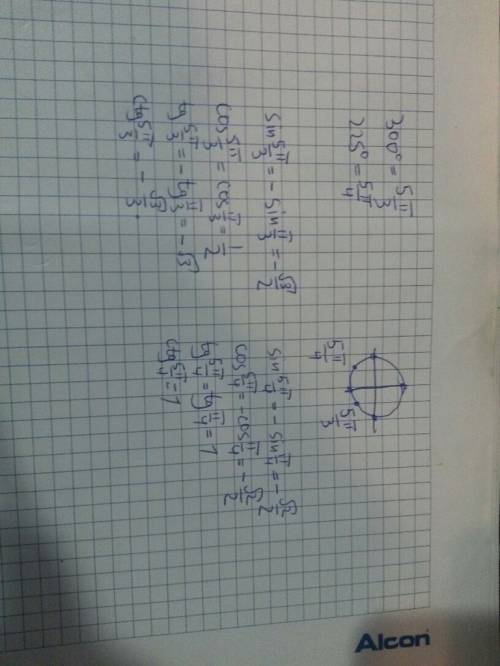 300° = 5π/3
225° = 5π/4
5π/4
5π/3
sin 5π/3 = - sin π/3 = - √3/2
cos 5π/3 = cos π/3 = 1/2
tg 5π/3 = - tg π/3 = - √3
ctg 5π/3 = - √3/3.
sin 5π/4 = - sin π/4 = - √2/2
cos 5π/4 = - cos π/4 = - √2/2
tg 5π/4 = tg π/4 = 1
ctg 5π/4 = 1
Alcon